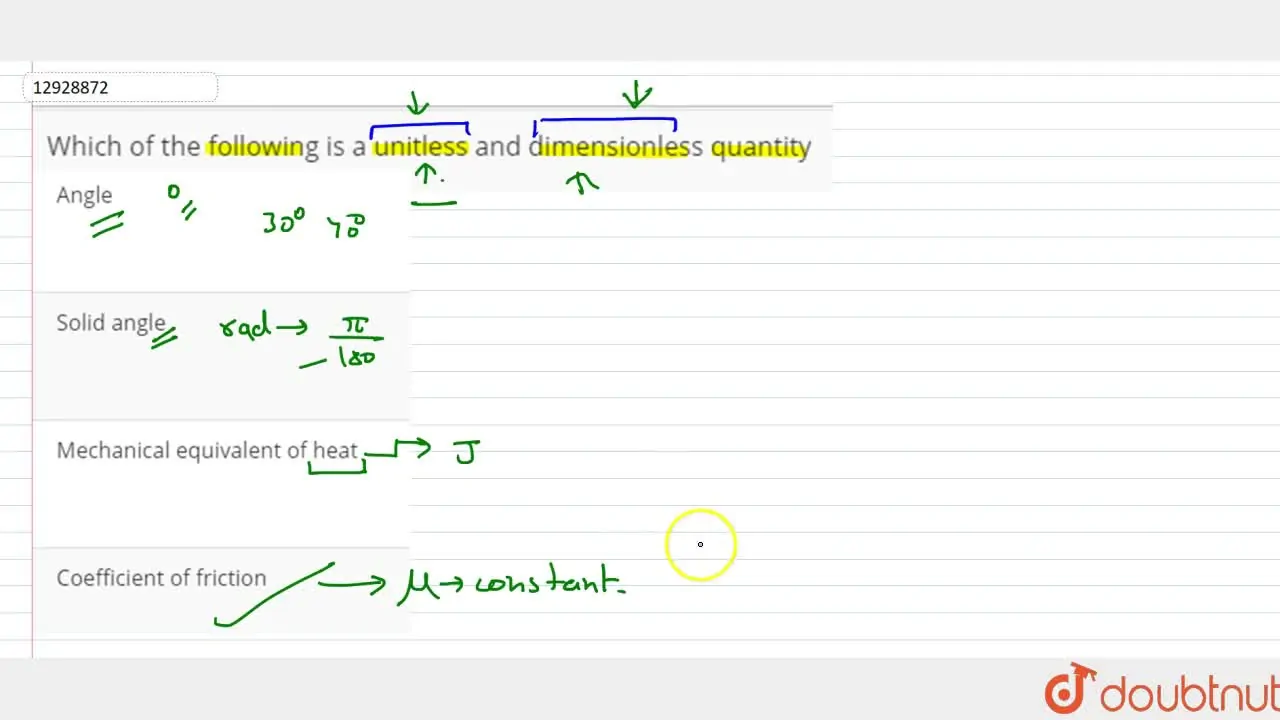 12928872
Which of the following is a unitless and dimensionless quantity
Angle
0
30° 40°
Solid angle
rad → π/180
Mechanical equivalent of heat → J
Coefficient of friction → μ → constant.
doubtnut